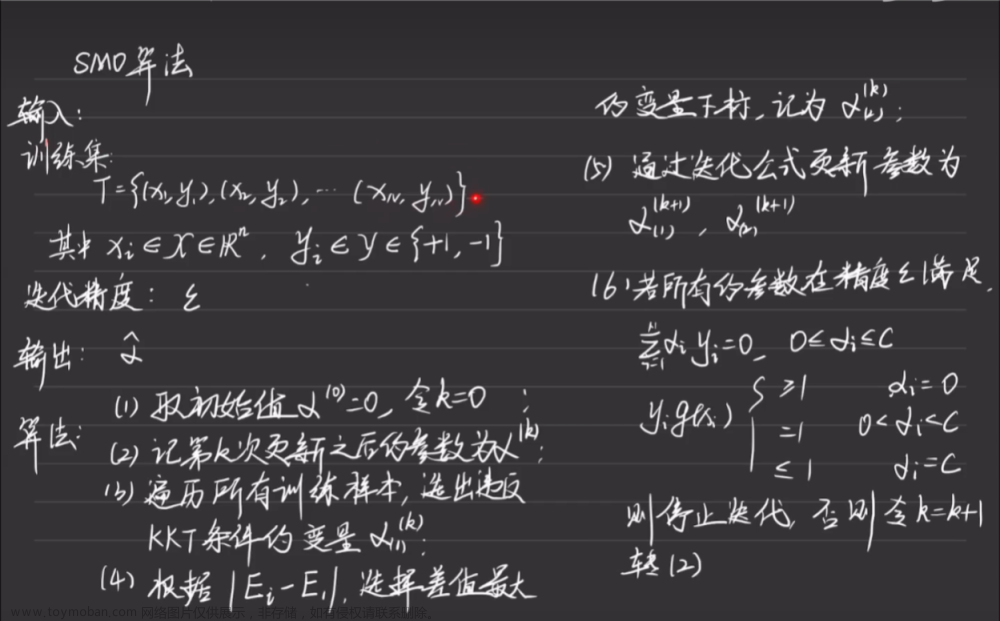 SMO算法
输入:
训练集:
T={(x₁,y₁),(x₂,y₂), … (x_N,y_N)}
其中 xᵢ∈X∈ℝⁿ, yᵢ∈Y∈{+1,-1}
迭代精度: ε
输出: α̂
算法:
(1) 取初始值 α⁽⁰⁾=0, 令k=0 ;
(2) 记第k次更新之后的参数为α⁽ᵏ⁾;
(3) 遍历所有训练样本, 选出违反
KKT条件的变量 α₍₁₎⁽ᵏ⁾;
(4) 根据 |Eᵢ-E₁|, 选择差值最大
的变量下标, 记为 α₍₂₎⁽ᵏ⁾;
(5) 通过迭代公式更新参数为
α₍₁₎⁽ᵏ⁺¹⁾, α₍₂₎⁽ᵏ⁺¹⁾
(6) 若所有的参数在精度ε满足.
∑ᵢ₌₁ᴺ αᵢyᵢ=0, 0≤αᵢ≤C
yᵢg(xᵢ) { ≥1 αᵢ=0
=1 0<αᵢ<C
≤1 αᵢ=C
则停止迭代, 否则令k=k+1
转(2)
www.toymoban.com 网络图片仅供展示,非存储,如有侵权请联系删除。